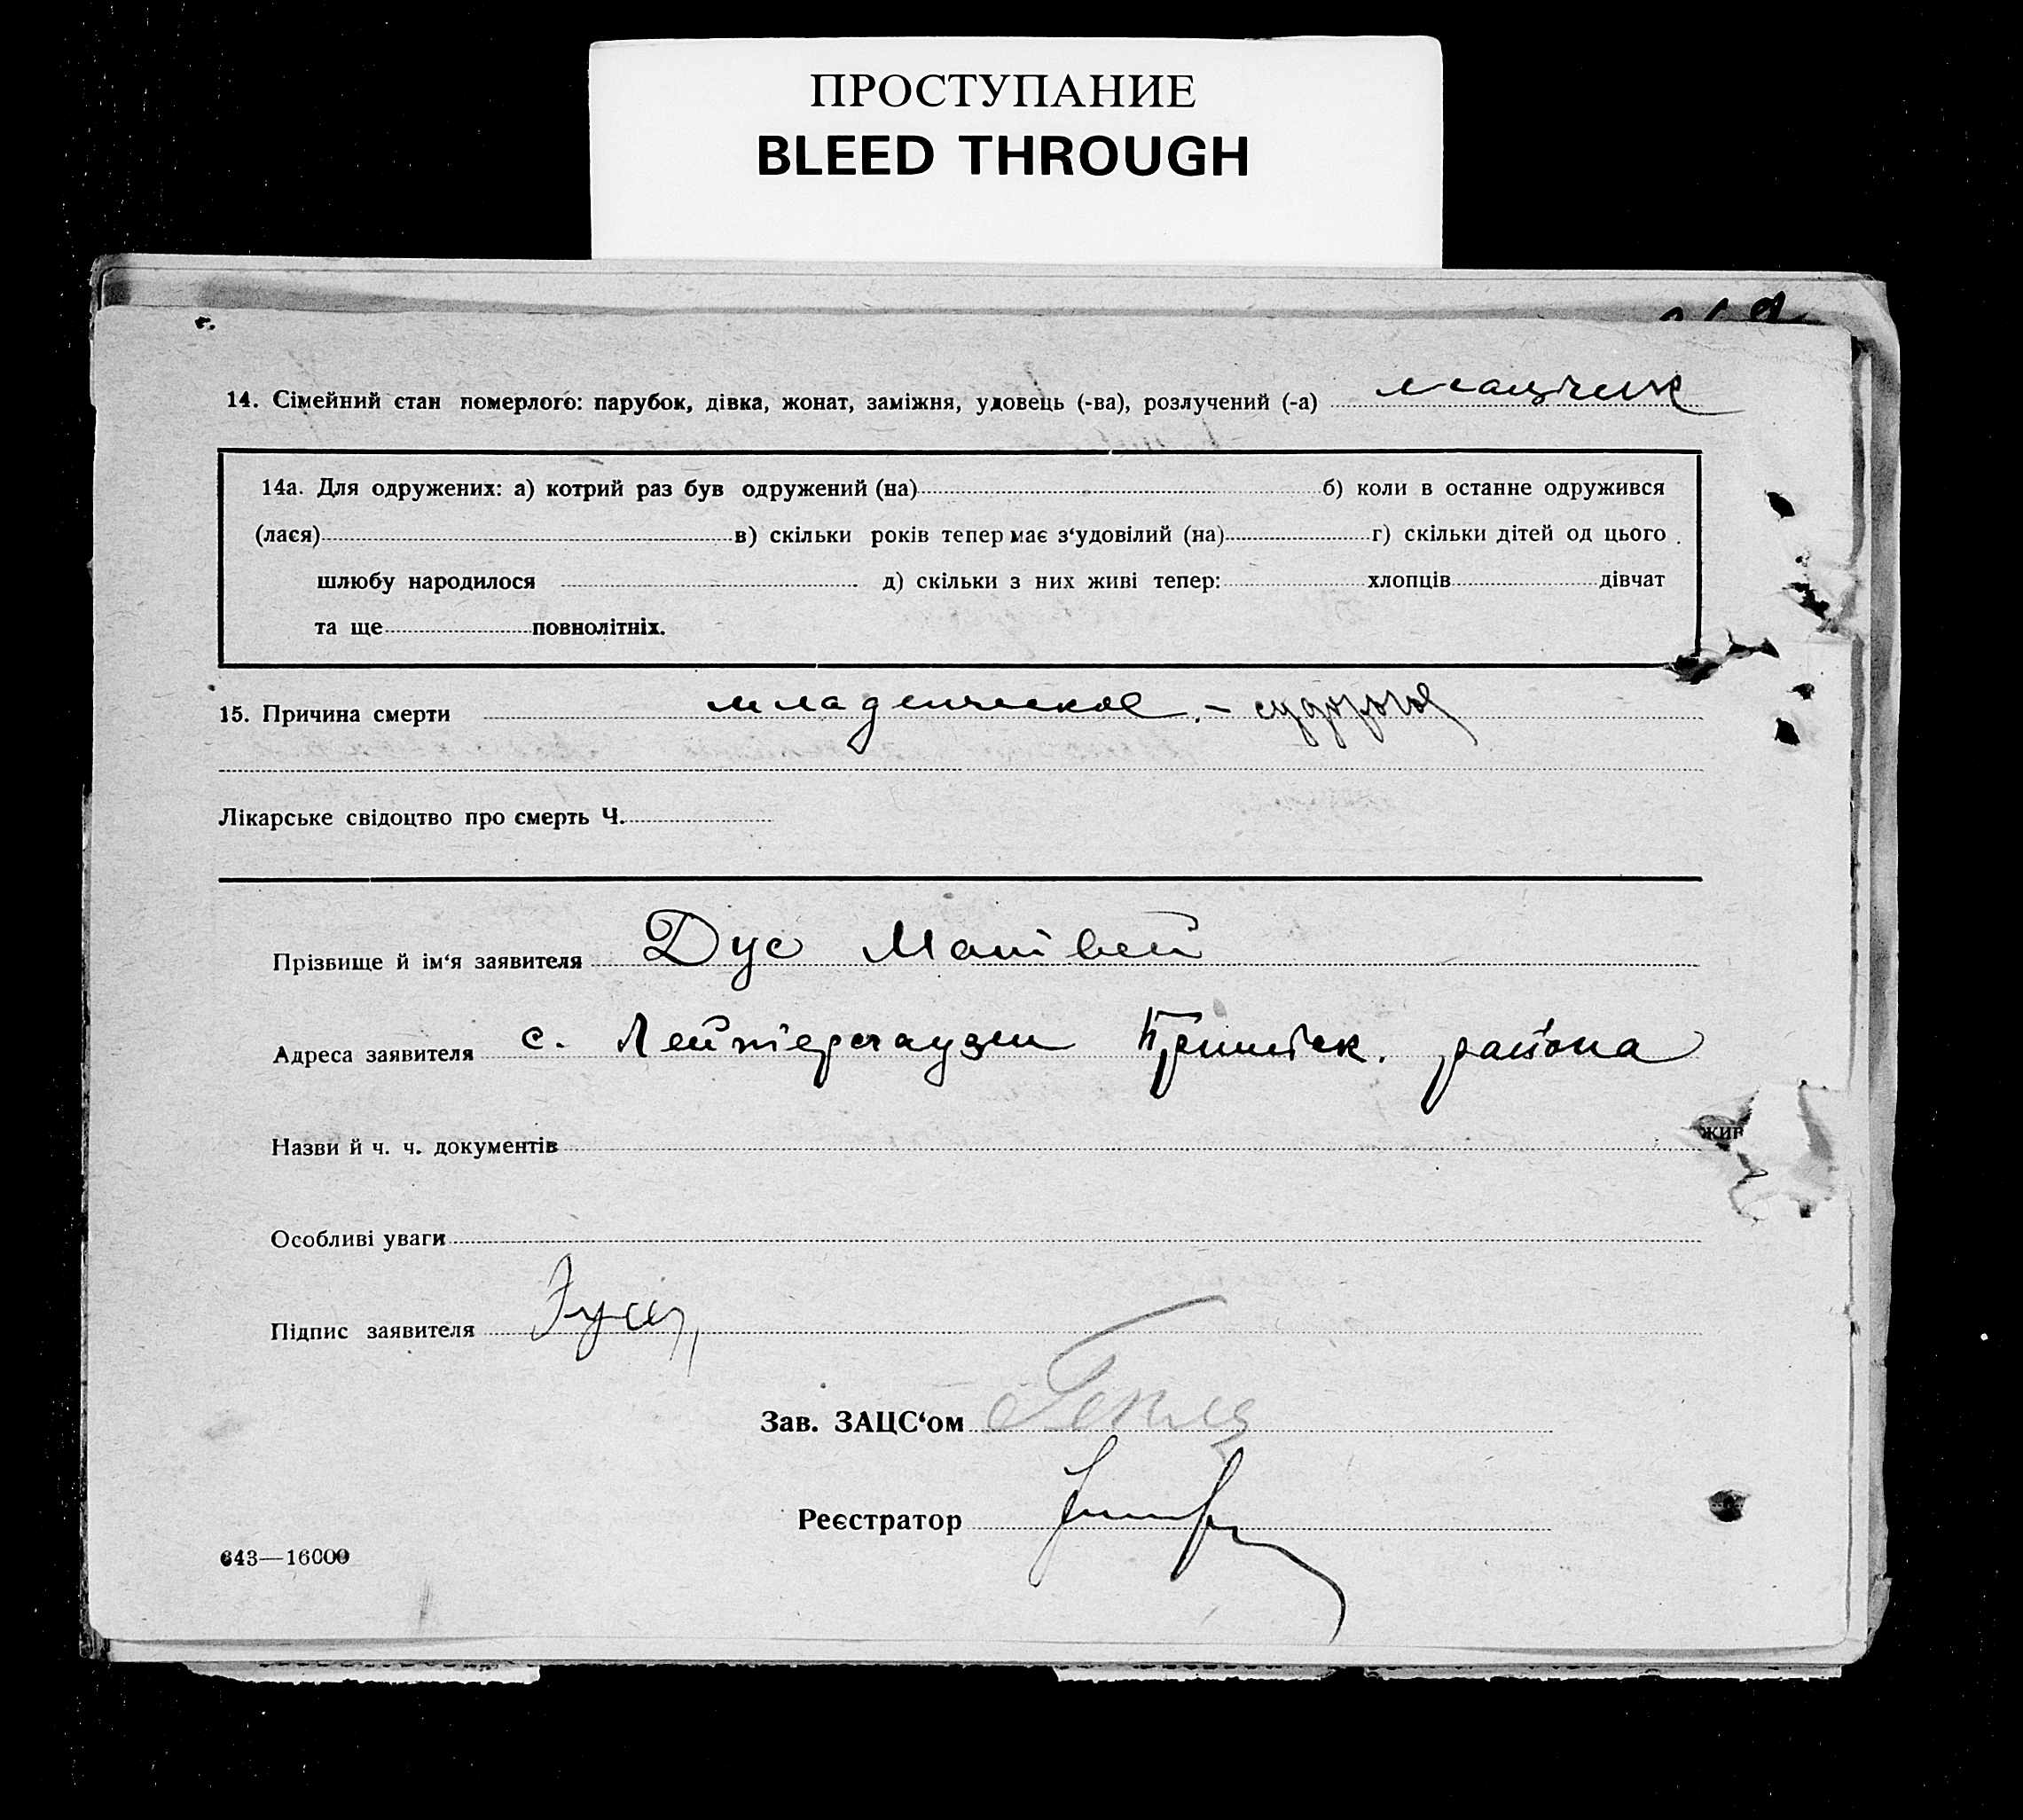 ПРОСТУПАНИЕ
BLEED THROUGH
14. Сімейний стан померлого: парубок, дівка, жонат, заміжня, удовець (-ва), розлучений (-а)
14а. Для одружених: а) котрий раз був одружений (на) б) коли в останне одружився
(лася) в) скільки років тепер має з‘удовілий (на) г) скільки дітей од цього
шлюбу народилося д) скільки з них живі тепер: хлопців дівчат
та ще повнолітніх.
15. Причина смерти младенческое - судорога
Лікарське свідоцтво про смерть Ч.
Прізвище й ім‘я заявителя Дус Матвей
Адреса заявителя с. района
Назви й ч. ч. документів
жив
Особливі уваги
Підпис заявителя
Зав. ЗАЦС‘ом
Реєстратор
643—16000